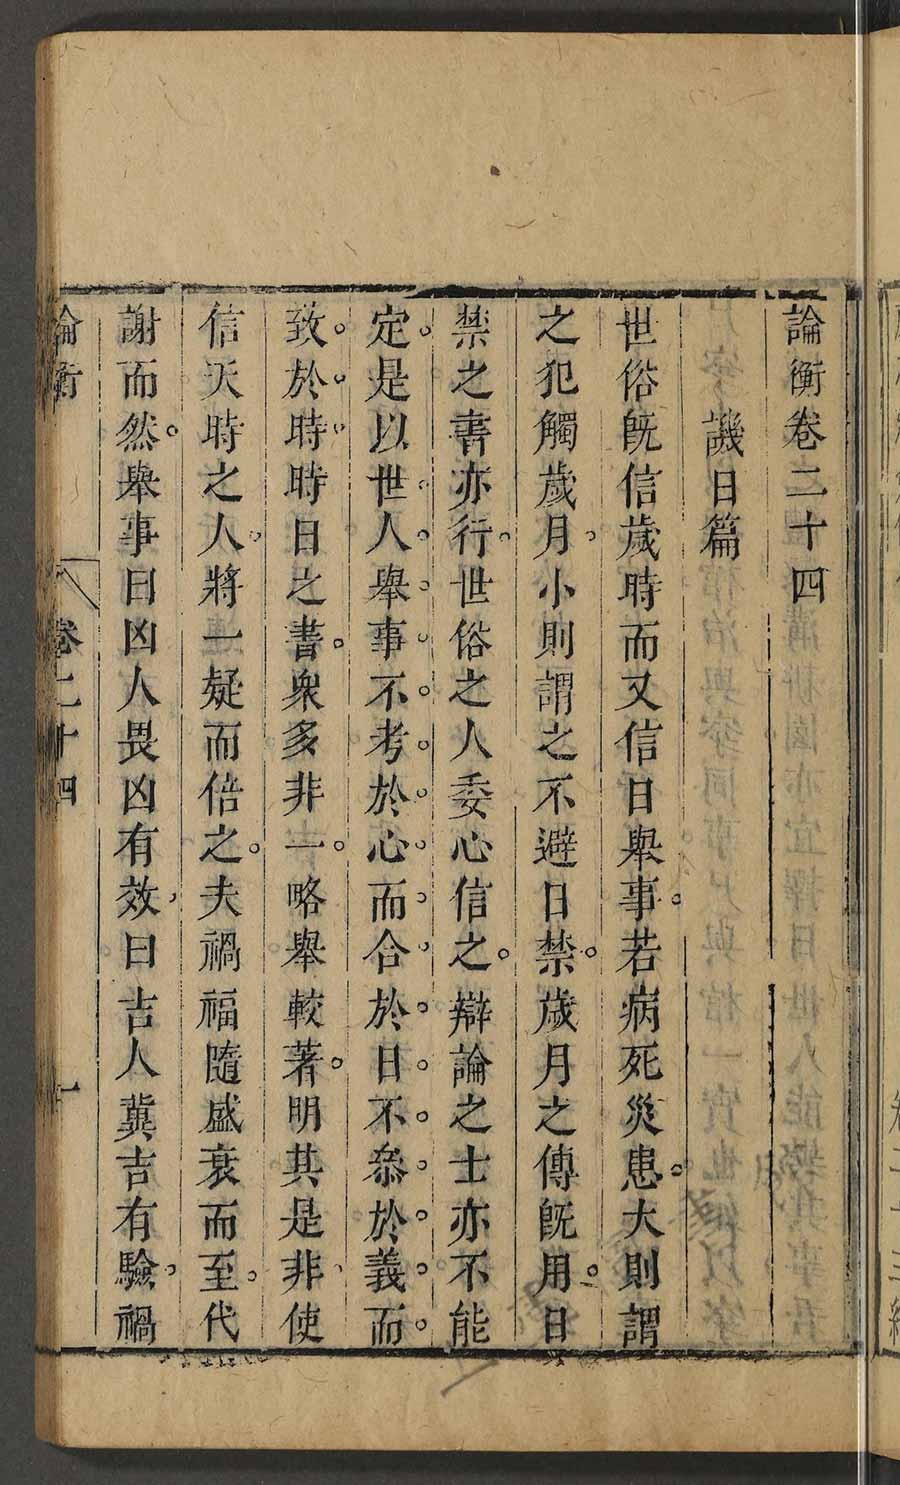 論衡卷二十四
譏日篇
世俗既信歲時而又信日舉事。若病死災患。大則謂
之犯觸歲月。小則謂之不避日禁。歲月之傳既用。日
禁之書亦行。世俗之人委心信之。辯論之士亦不能
定。是以世人。舉事。不考於心。而合於日。不叅於義。而
致於時。時日之書。衆多非一。略舉較著。明其是非使
信天時之人。將一疑而倍之。夫禍福隨盛衰而至。代
謝而然。舉事曰凶人畏凶有效。曰吉人冀吉有驗。禍
論衡 卷二十四 一